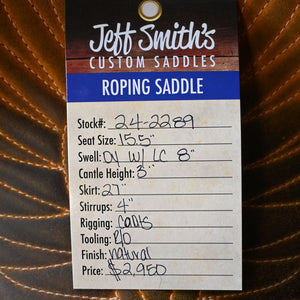 Jeff Smith's
CUSTOM SADDLES
ROPING SADDLE
Stock#: 24-2289
Seat Size: 15.5"
Swell: W/ LC 8"
Cantle Height: 3"
Skirt: 27"
Stirrups: 4"
Rigging:
Tooling: P/O
Finish: natural
Price: $2,950